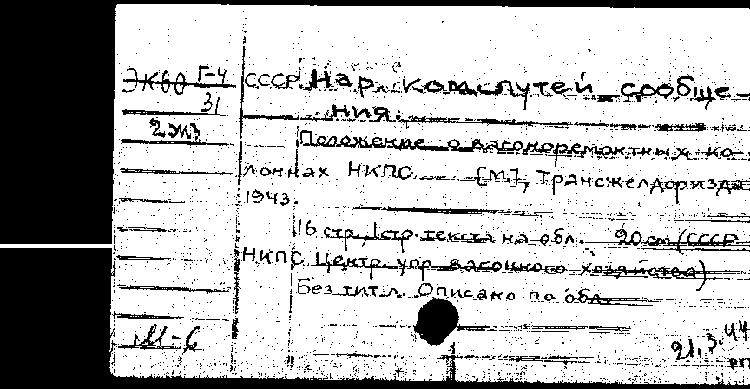 Г-4
ЭК60
31
2 экз
СССР. Нар. ком. путей сообще-
ния.
Положение о вагоноремонтных ко-
лоннах НКПС. [М.], Трансжелдориздат
1943.
16 стр., 1 стр. текста на обл. 20 см (СССР
НКПС. Центр. упр. вагонного хозяйства)
Без тит. л. Описано по обл.
М-6
21.3.44